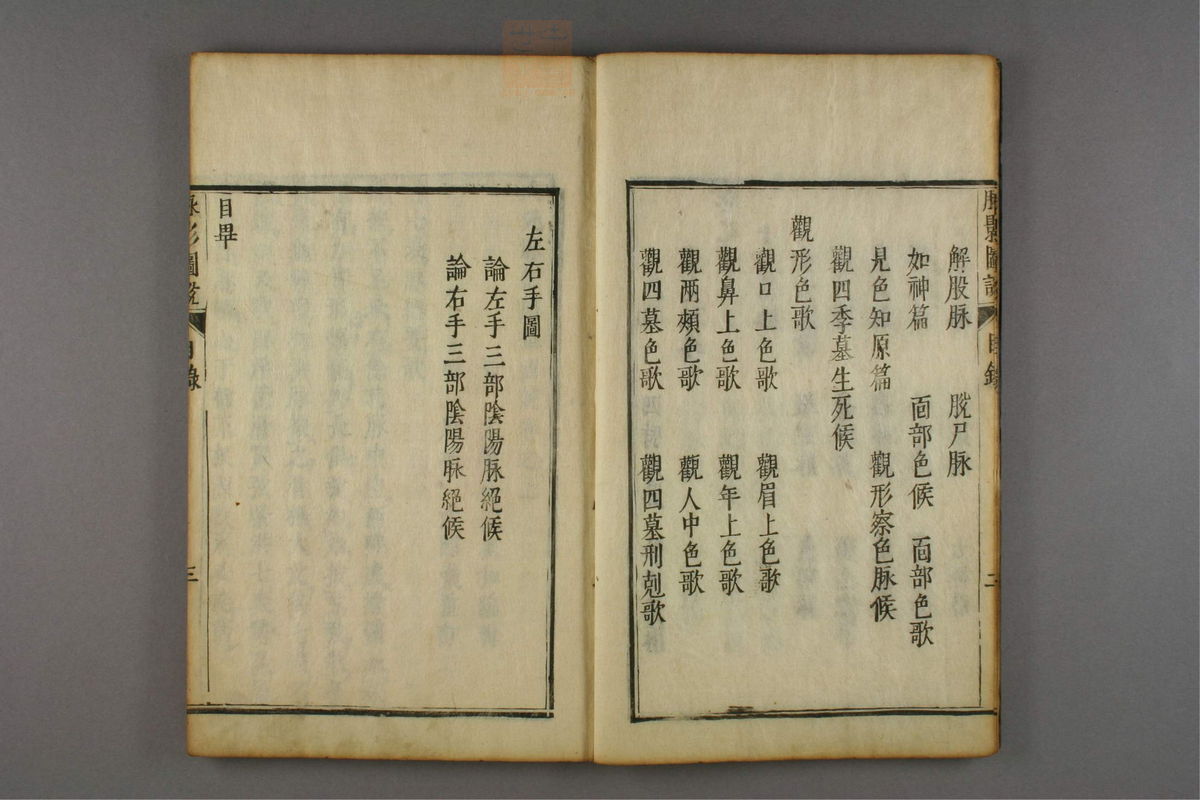 解股脉　脫尸脉
如神篇　面部色候　面部色歌
見色知原篇　觀形察色脉候
觀四季墓生死候
觀形色歌
觀口上色歌　觀眉上色歌
觀鼻上色歌　觀年上色歌
觀兩頰色歌　觀人中色歌
觀四墓色歌　觀四墓刑剋歌
左右手圖
論左手三部陰陽脉絕候
論右手三部陰陽脉絕候
目畢
圖
目錄
三